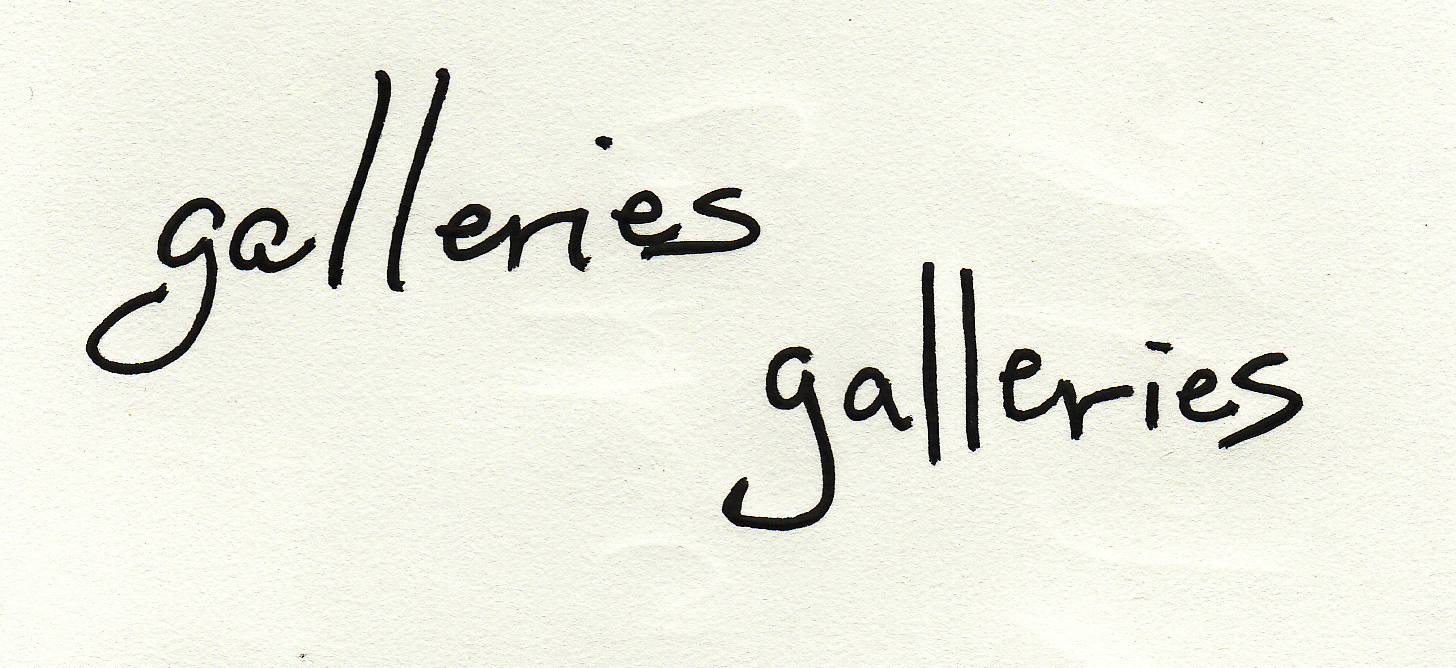 galleries
galleries